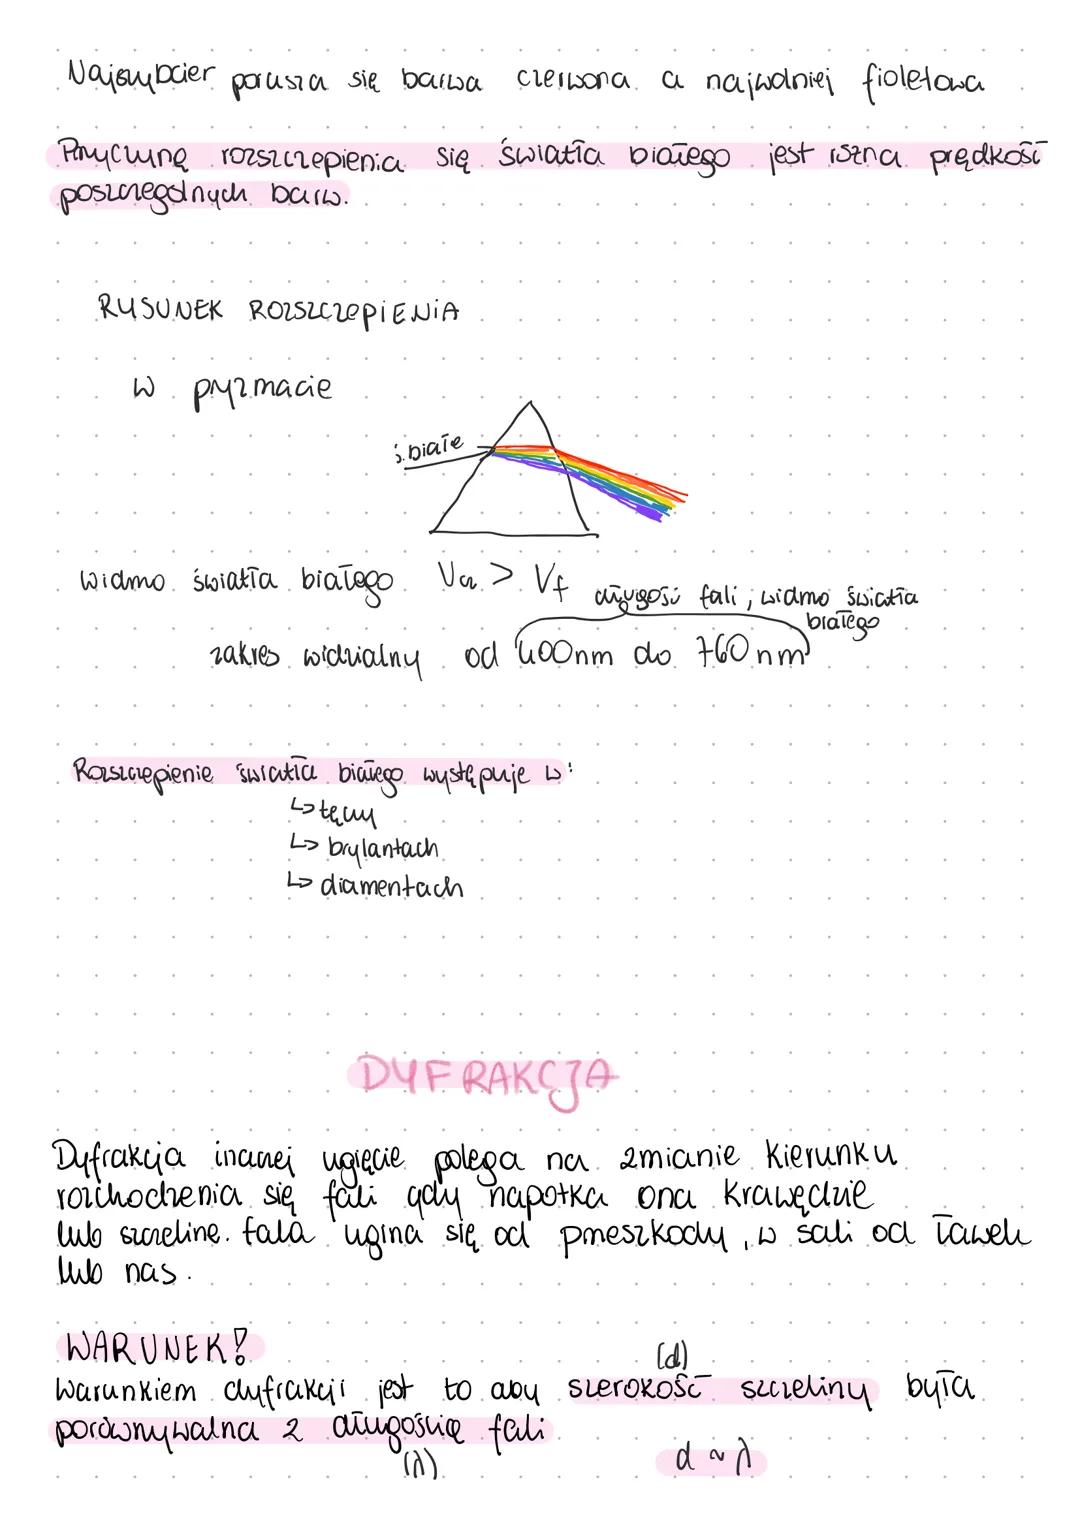 Najszybciej porusza się barwa czerwona a najwolniej fioletowa
Przyczyną rozszczepienia się światła białego jest różna prędkość
poszczególnych barw.
RYSUNEK ROZSZCZEPIENIA
w pryzmacie
ś. białe
widmo światła białego Vcz > Vf długość fali, widmo światła
białego
zakres widzialny od 400nm do 760nm
Rozszczepienie światła białego występuje w:
↳ tęczy
↳ brylantach
↳ diamentach
DYFRAKCJA
Dyfrakcja inaczej ugięcie polega na zmianie kierunku
rozchodzenia się fali gdy napotka ona krawędzie
lub szczelinę. fala ugina się od przeszkody, w sali od ławek
lub nas.
WARUNEK!
(d)
Warunkiem dyfrakcji jest to aby szerokość szczeliny była
porównywalna z długością fali
(λ)
d ~ λ